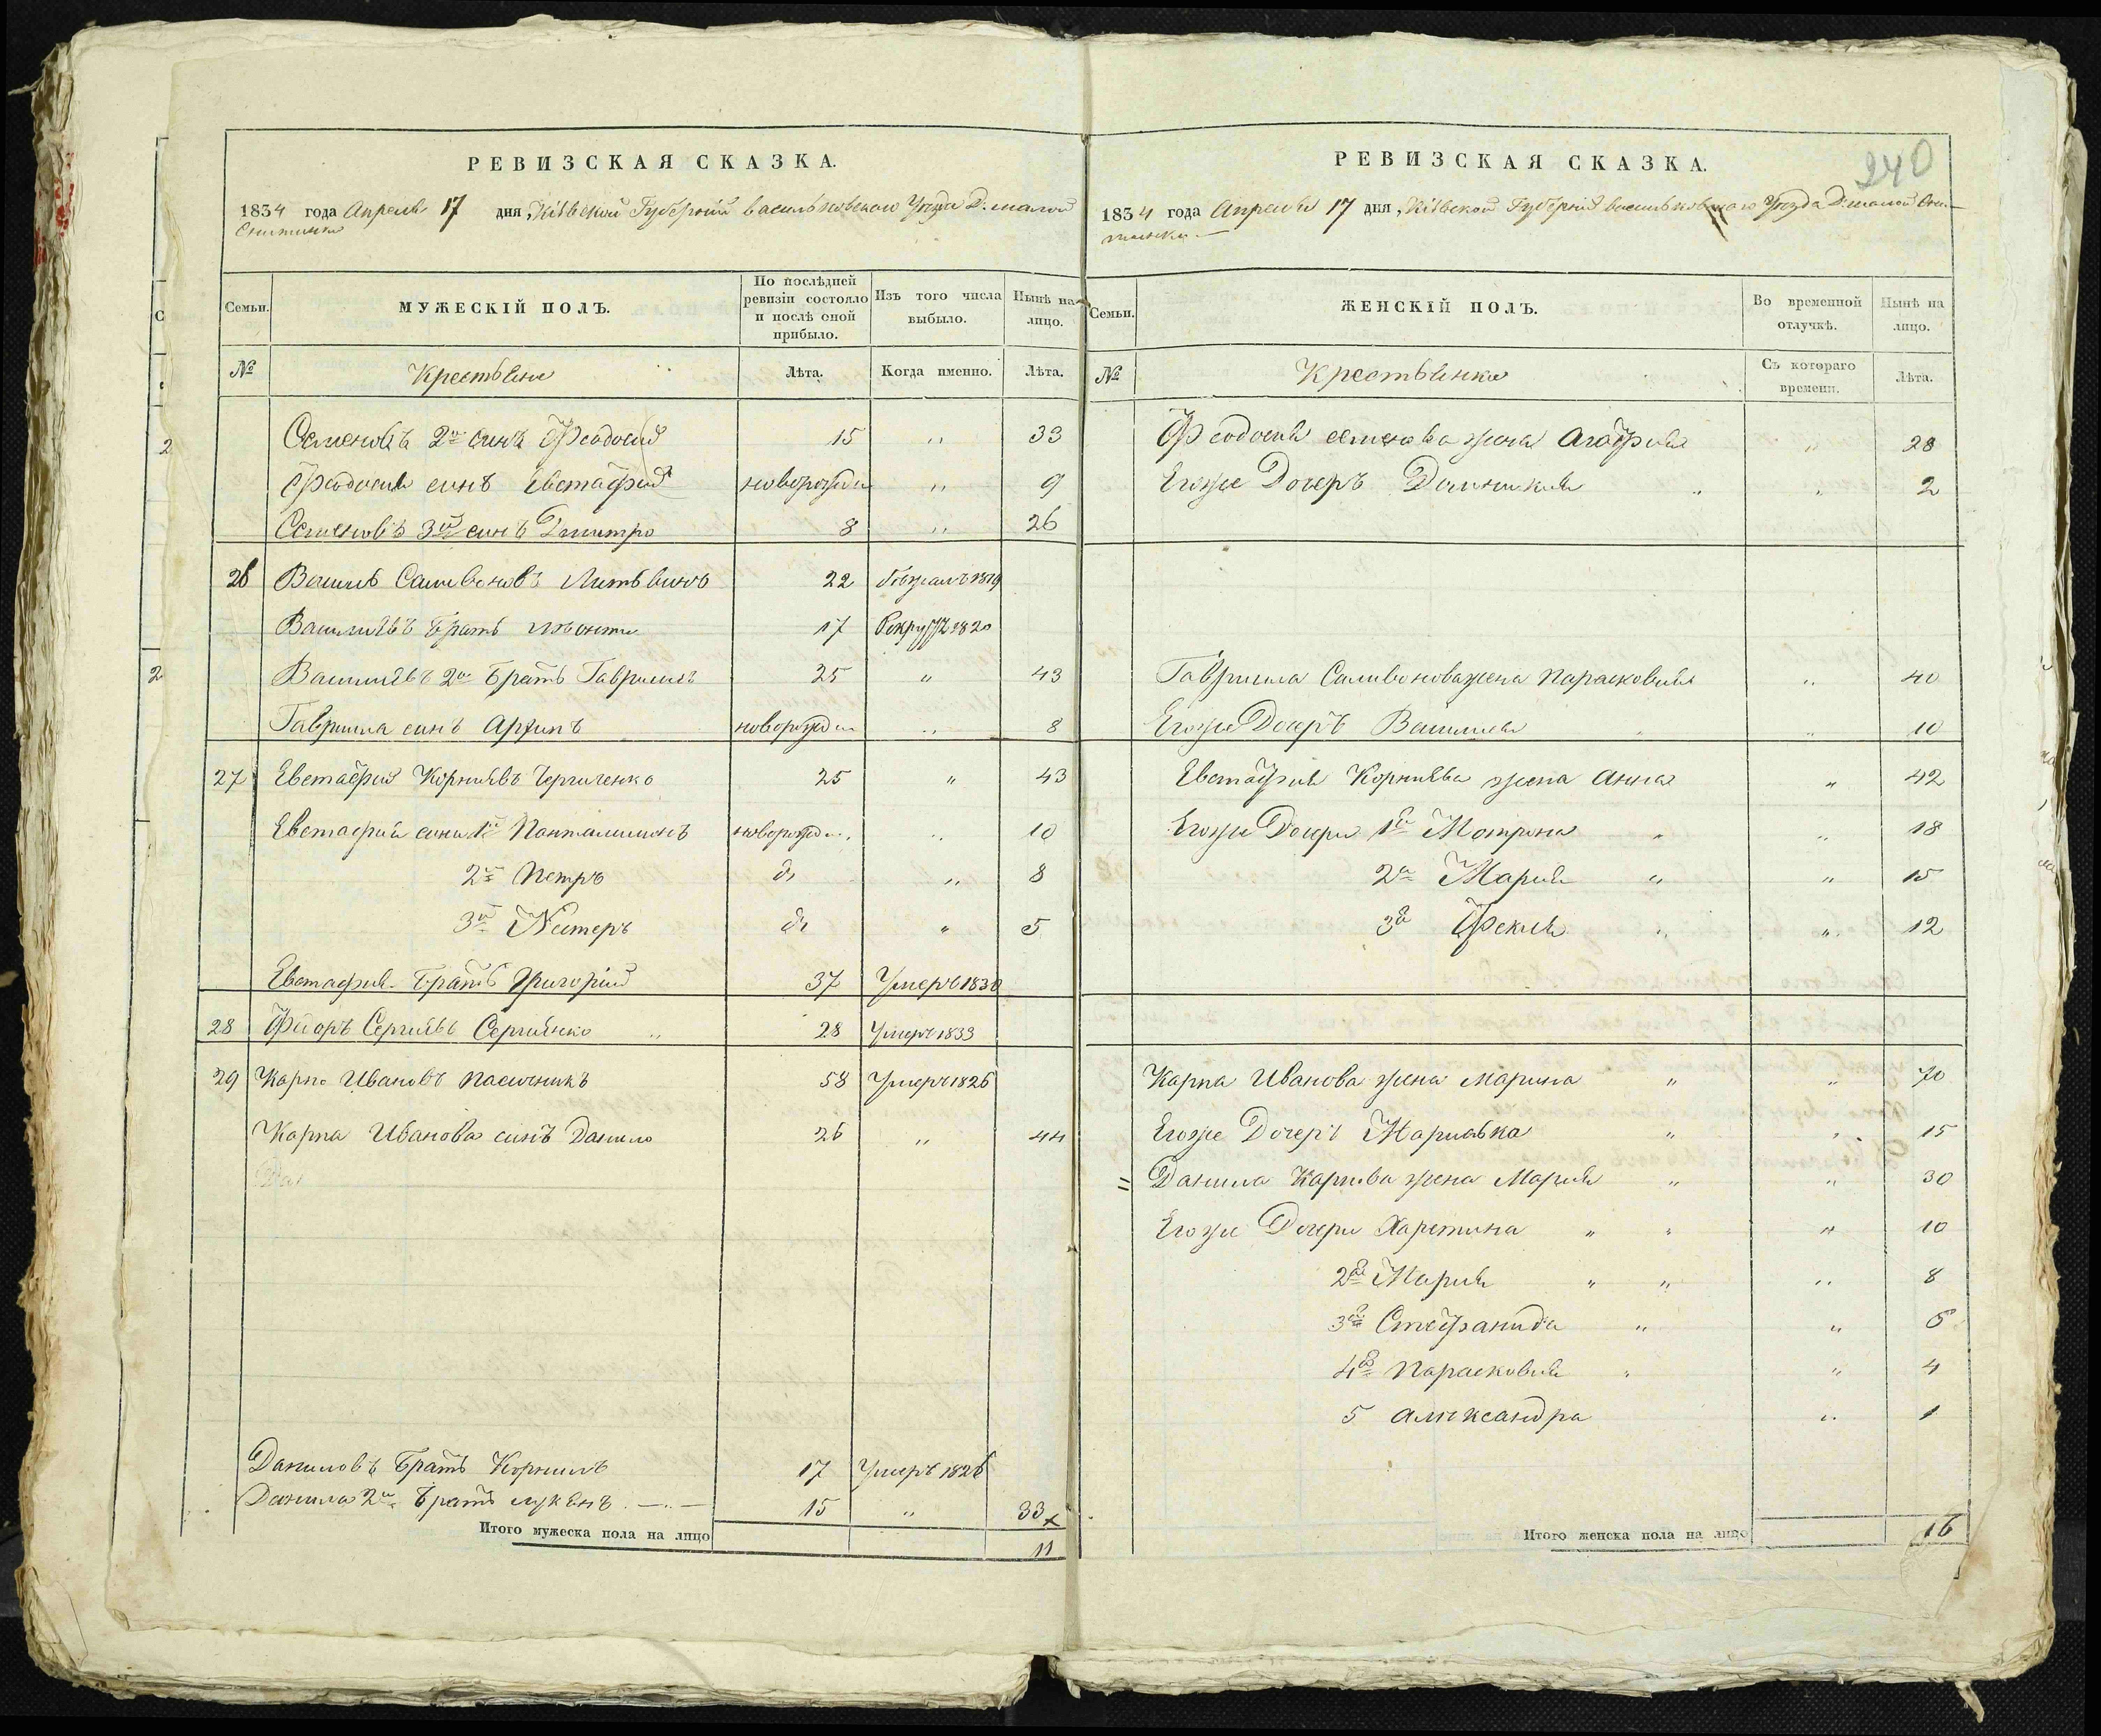 РЕВИЗСКАЯ СКАЗКА.
1834 года Апреля 17 дня, Кіевской Губерніи васильковского Уезда Д. малой
Снитинки
Семьи. МУЖЕСКІЙ ПОЛЪ. По послѣдней ревизіи состояло и послѣ оной прибыло. Изъ того числа выбыло. Нынѣ на лицо.
№ Крестьяне Лѣта. Когда именно. Лѣта.
Семеновъ 2й синъ Феодосий 15 „ 33
Феодосия синъ Евстафий новорожден „ 9
Семеновъ 3й синъ Дмитро 8 „ 26
26 Василь Саливоновъ Литъвинъ 22 бежалъ 1819
Василиевъ братъ 17 Рекрут 1820
Василиевъ 2й братъ Гаврило 25 „ 43
Гаврила синъ Архипъ новорожден „ 8
27 Евстафий Корниевъ 25 „ 43
Евстафия сини 1й Пантилимонъ новорожден. „ 10
2й Петръ д. „ 8
3й Нестеръ д. „ 5
Евстафия братъ Григорій 37 Умеръ 1830
28 Федоръ Сергиевъ Сергиенко „ 28 Умеръ 1833
29 Карпо Ивановъ Пасичникъ 58 Умеръ 1826
Карпа Иванова синъ Данило 26 „ 44
Даниловъ братъ Корнило 17 Умеръ 1826
Данила 2й братъ 15 „ 33
Итого мужеска пола на лицо 11
240
РЕВИЗСКАЯ СКАЗКА.
1834 года Апреля 17 дня, Кіевской Губерніи васильковского Уезда Д. малой Сни-
тинки
Семьи. ЖЕНСКІЙ ПОЛЪ. Во временной отлучкѣ. Нынѣ на лицо.
№ Крестьянки Съ котораго времени. Лѣта.
Феодосия семенова жена Агафия „ 28
Егоже Дочеръ Домникия „ 2
Гаврила Саливонова жена Парасковия „ 40
Егоже Дочеръ Василиса „ 10
Евстафия Корниева жена Анна „ 42
Егоже Дочери 1я Мотрона „ „ 18
2я Мария „ „ 15
3я Фекла „ „ 12
Карпа Иванова жена Марина „ „ 70
Егоже Дочеръ „ „ 15
Данила Карпова жена Мария „ „ 30
Егоже Дочери Харитина „ „ „ 10
2я Мария „ „ „ 8
3я Стефанида „ „ 6
4я Парасковия „ „ 4
5 Александра „ 1
Итого женска пола на лицо 16